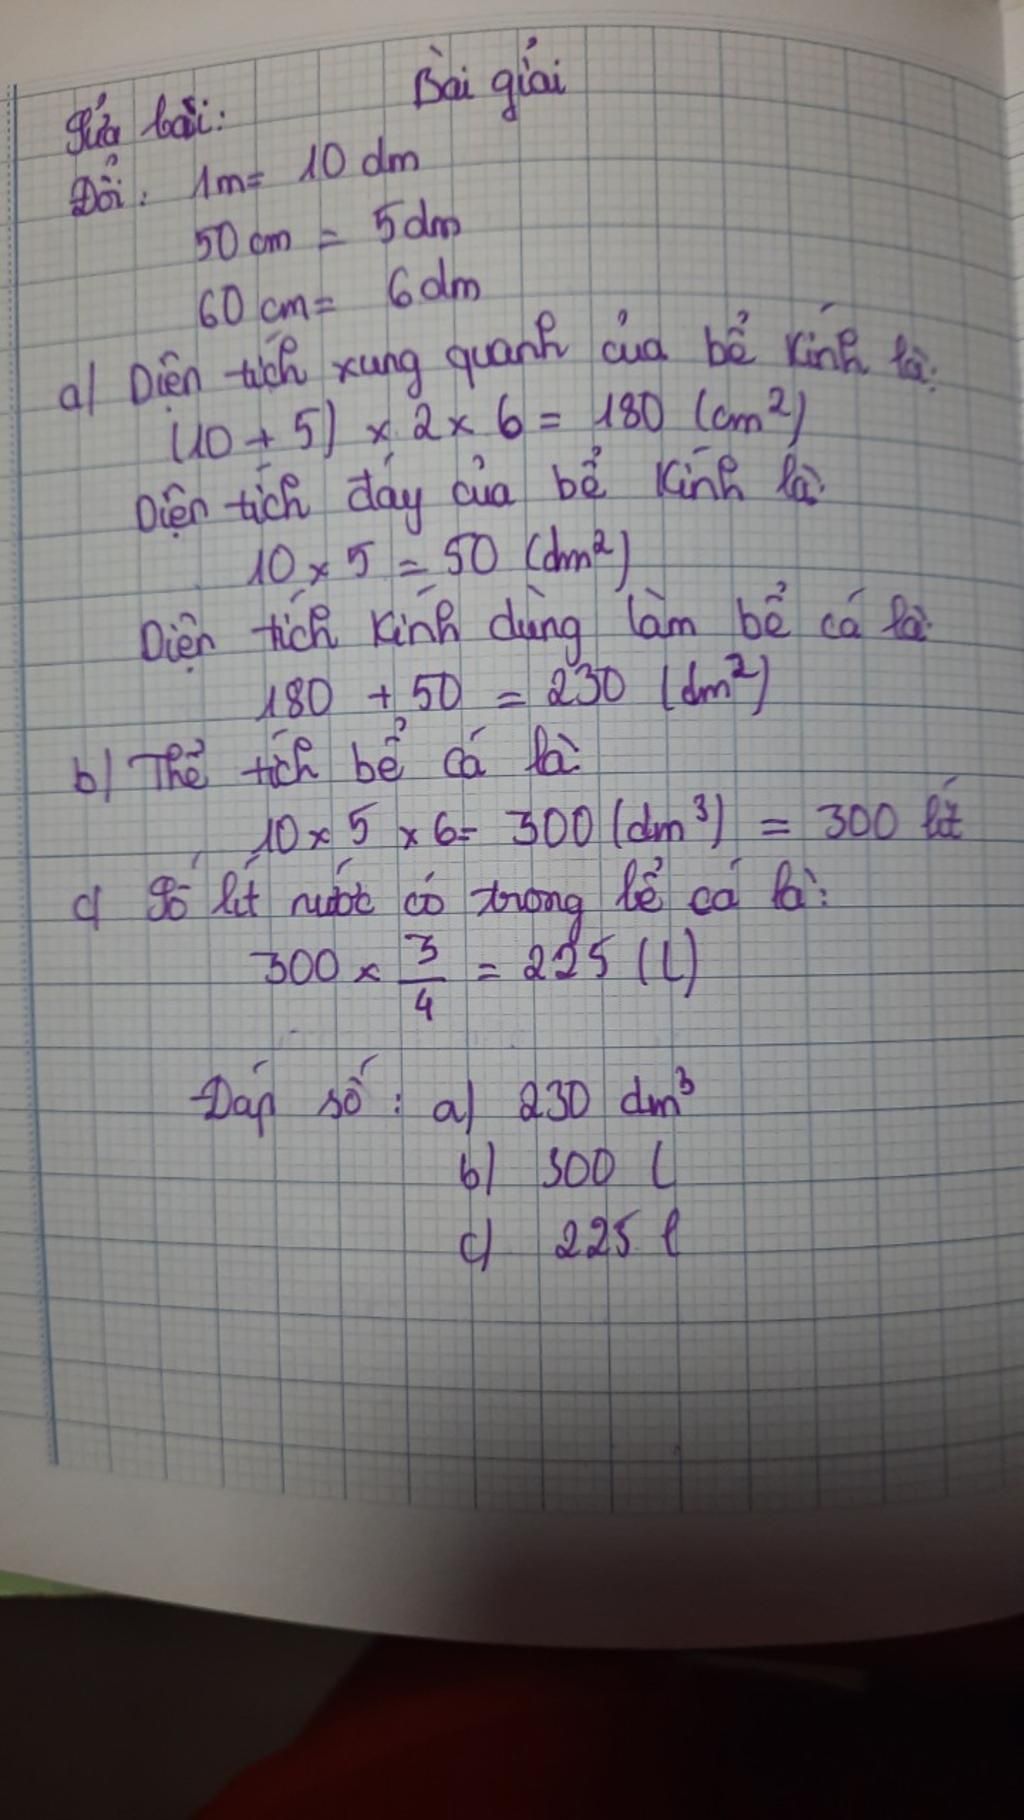 Bài giải
Sửa bài:
Đổi: 1m = 10 dm
50 cm = 5 dm
60 cm = 6 dm
a) Diện tích xung quanh của bể kính là:
(10 + 5) x 2 x 6 = 180 (cm²)
Diện tích đáy của bể kính là:
10 x 5 = 50 (dm²)
Diện tích kính dùng làm bể cá là:
180 + 50 = 230 (dm²)
b) Thể tích bể cá là:
10 x 5 x 6 = 300 (dm³) = 300 lít
c) Số lít nước có trong bể cá là:
300 x 3/4 = 225 (l)
Đáp số: a) 230 dm³
b) 300 l
c) 225 l